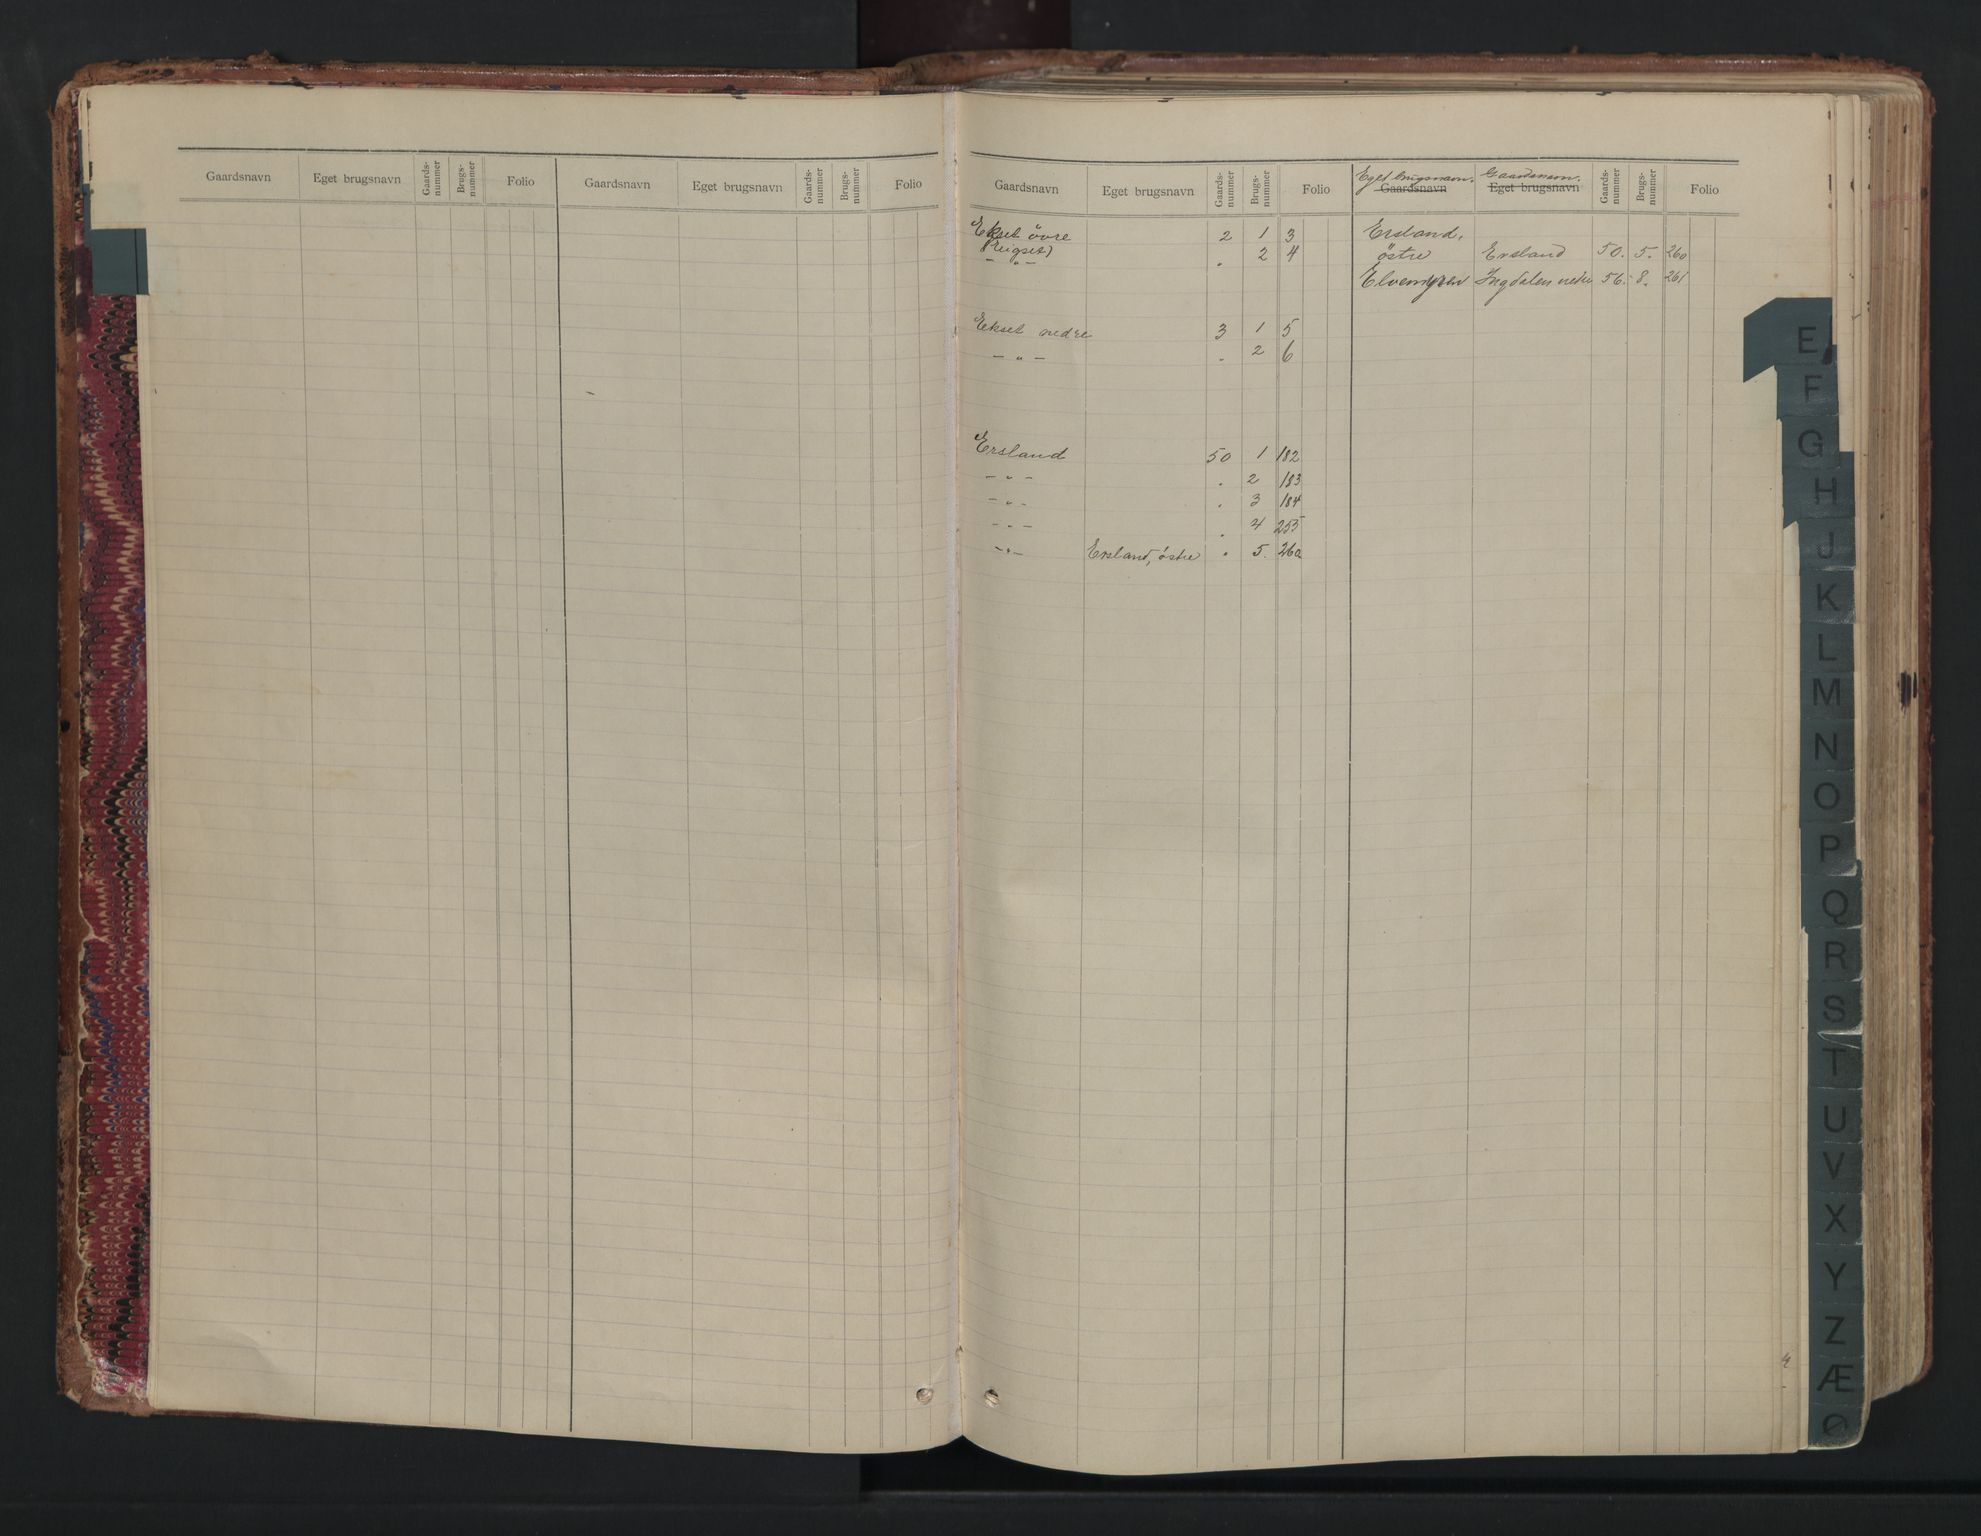 Gaardsnavn Eget brugsnavn Gaards-nummer Brugs-nummer Folio Gaardsnavn Eget brugsnavn Gaards-nummer Brugs-nummer Folio
Gaardsnavn Eget brugsnavn Gaards-nummer Brugs-nummer Folio
Ekset övre 2 1 3
- " - " 2 4
Ekset nedre 3 1 5
- " - " 2 6
Ersland 50 1 182
- " - " 2 183
- " - " 3 184
- " - " 4 255
- " - Ersland, östre " 5. 260
Eget brugsnavn. Gaardsnavn.
Gaardsnavn Eget brugsnavn Gaards-nummer Brugs-nummer Folio
Ersland,
östre Ersland 50. 5. 260
Ingdalen nedre 56. 8. 261
E
F
G
H
J
K
L
M
N
O
P
Q
R
S
T
U
V
X
Y
Z
Æ
Ø